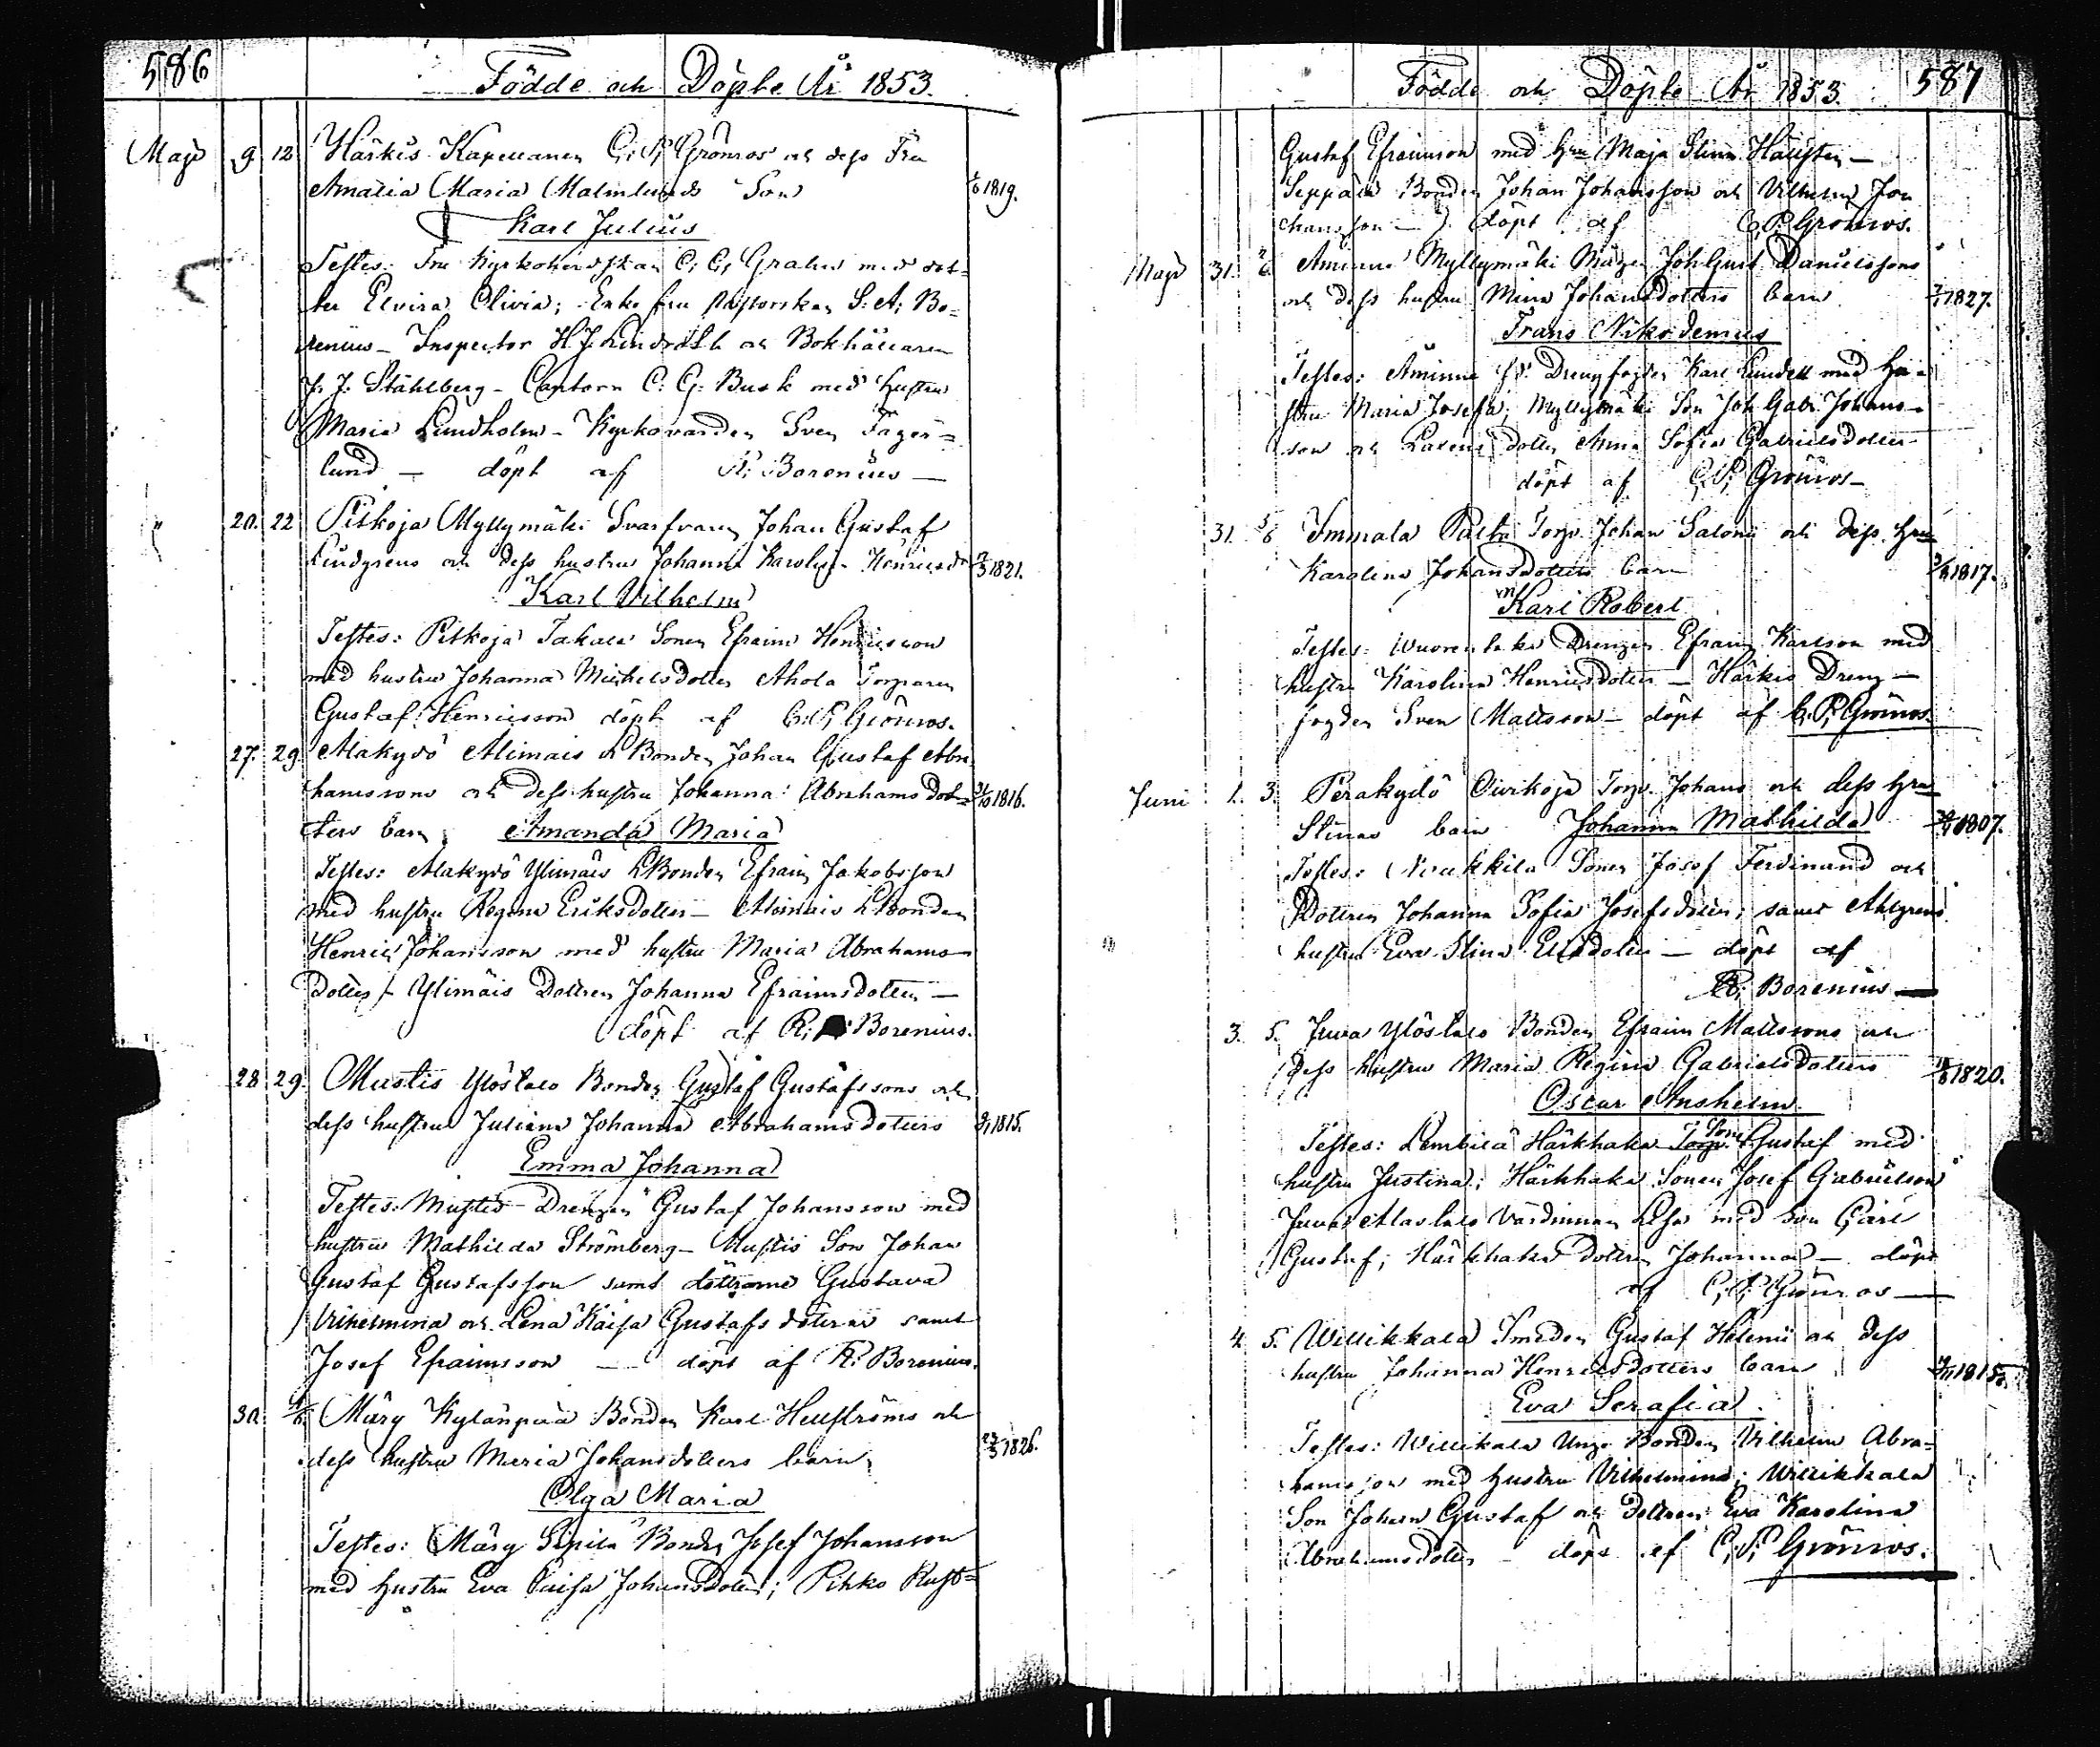 586
Födde och Döpte År 1853.
Majo 9 12 Härkis Kapellanen C. P. Grönros och dess Fru
Amalia Maria Malmlunds Son 1819.
Karl Julius
Testes: Fru Kyrkoherdskan C. G. Grahn med dot-
ter Elvira Olivia; Enke fru Pastorskan S. A. Bo-
renius - Inspector H J Lindroth och Bokhållaren
J. J. Ståhlberg - Cantorn C. G. Busk med hustru
Maria Lundholm - Kyrkovärden Sven Fager-
lund - döpt af R. Borenius -
20. 22 Pitkoja Myllymäki Svarfvaren Johan Gustaf
Lindgrens och dess hustru Johanna Karolina Henricsd 1821.
Karl Vilhelm
Testes: Pitkoja Takala Sonen Efraim Henricsson
med hustru Johanna Michelsdotter Ahola Torparen
Gustaf Henricsson döpt af C. P. Grönros.
27. 29. Alakydö Alimais LBonden Johan Gustaf Abra
hamssons och dess hustru Johanna Abrahams Dot- 1816.
ters barn Amanda Maria
Testes: Alakydö Ylimäis LBonden Efraim Jakobsson
med hustru Regina Eriksdotter - Alimais LBonden
Henric Johansson med hustru Maria Abrahams-
dotter Ylimäis Dottren Johanna Efraimsdotter -
döpt af R. Borenius.
28 29. Mustis Ylöstalo Bonden Gustaf Gustafssons och
dess hustru Juliana Johanna Abrahamsdotters 1815.
Emma Johanna
Testes: Mustis Drengen Gustaf Johansson med
hustru Mathilda Strömberg - Mustis Son Johan
Gustaf Gustafsson samt döttrarne Gustava
Vilhelmina och Lena Kaisa Gustafsdöttrar samt
Josef Efraimsson - döpt af R. Borenius.
30. Märy Kylänpää Bonden Karl Hellströms och
dess hustru Maria Johansdotters barn 1826.
Olga Maria
Testes: Märy Sipilä Bonden Josef Johansson
med hustru Eva Caisa Johansdotter; Pihko Rust-
587
Födde och Döpte År 1853.
Gustaf Efraimson med hru Maja Stina Hällsten -
Seppälä Bonden Johan Johansson och Vilhelm Jo
hansson - döpt af C. P. Grönros.
Majo 31. Åminne Myllymäki Mågen Joh Gust Danielssons
och dess hustru Mina Johansdotters barn 1827.
Frans Nikodemus
Testes: Åminne fd. Drengfogden Karl Lundell med hu-
stru Maria Josefa; Myllymäki Son Joh Gab. Johans-
son och dotter Anna Sofia Gabrielsdotter
döpt af C. P. Grönros -
31. Immala Torp. Johan Salonii och dess hru
Karolina Johansdotters barn 1817.
Karl Robert
Testes: Wuorentaka Drengen Efraim Karlson med
hustru Karolina Henricsdotter - Härkis Dreng-
fogden Sven Mattsson - döpt af C. P. Grönros.
Juni 1. 3. Peräkydö Oivikoja Torp. Johans och dess hru
Stinas barn Johanna Mathilda 1807.
Testes: Nuukkila Sonen Josef Ferdinand och
Dottren Johanna Sofia Josefsdotter; samt Ahlgrens
hustru Eva Stina Elisdotter - döpt af
R. Borenius -
3. 5. Juva Ylöstalo Bonden Efraim Mattssons och
dess hustru Maria Regina Gabrielsdotters 1820.
Oscar Anshelm
Testes: Lembilä Härkhaka Sonen Gustaf med
hustru Justina; Härkhaka Sonen Josef Gabrielson
Juvas Alastalo Värdinnan Lisa med Son Carl
Gustaf; Härkhaka dottren Johanna - döpt
af C. P. Grönros -
4. 5. Willikkala Smeden Gustaf Helenii och dess
hustru Johanna Henricsdotters barn 1815.
Eva Serafia
Testes: Willikala Unge Bonden Vilhelm Abra-
hamsson med hustru Vilhelmina; Willikkala
Son Johan Gustaf och Dottren Eva Karolina
Abrahamsdotter - döpt af C. P. Grönros.